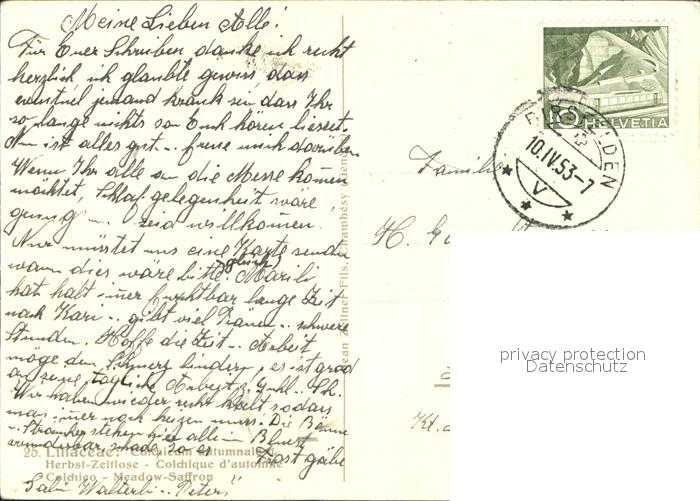 Meine Lieben Alle!
Für Euer Schreiben danke ich recht
herzlich ich glaubte gewiss, dass
eventuel jemand krank sei dass Ihr
so lange nichts von Euch hören liesset.
Nun ist alles gut... freue mich darüber
Wenn Ihr alle an die Messe kom̄en
möchtet, Schlafgelegenheit wäre
genug ... seid willkom̄en.
Nur müsstet uns eine Karte senden
wann dies wäre bitte. gleich Marili
hat halt im̄er furchtbar lange Zeit
nach Kari.. gibt viel Tränen.. schwere
Stunden. Hoffe die Zeit .. Arbeit
möge den Schmerz lindern, es ist grad
an seine tägliche Arbeit
Wir haben wieder recht kalt sodass
man im̄er noch heizen muss. Die Bäume
.. Sträucher stehen hier alle im Bluest
wunderbar, schade, so es Frost gäbe
25. Liliaceae: Colchicum autumnale L.
Herbst-Zeitlose - Colchique d'automne
Colchico - Meadow-Saffron
Walterli .. Peter
Jean Zellner Fils, Chambésy
HELVETIA
BIRSFELDEN
10.IV.53-7
V
Familie
H. G
Kt.
privacy protection
Datenschutz